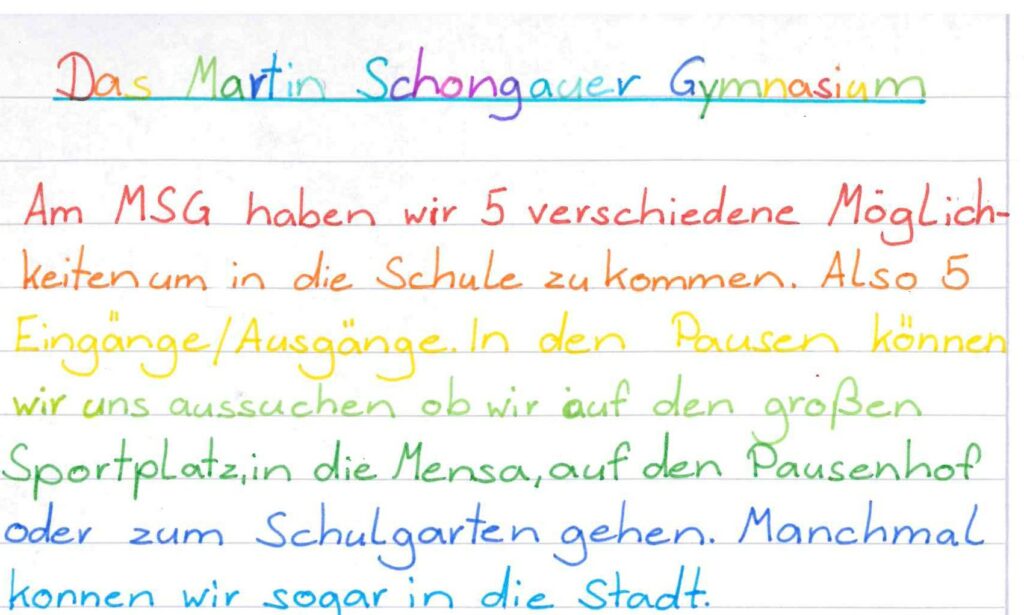 Das Martin Schongauer Gymnasium
Am MSG haben wir 5 verschiedene Möglich-
keiten um in die Schule zu kommen. Also 5
Eingänge/Ausgänge. In den Pausen können
wir uns aussuchen ob wir auf den großen
Sportplatz, in die Mensa, auf den Pausenhof
oder zum Schulgarten gehen. Manchmal
konnen wir sogar in die Stadt.